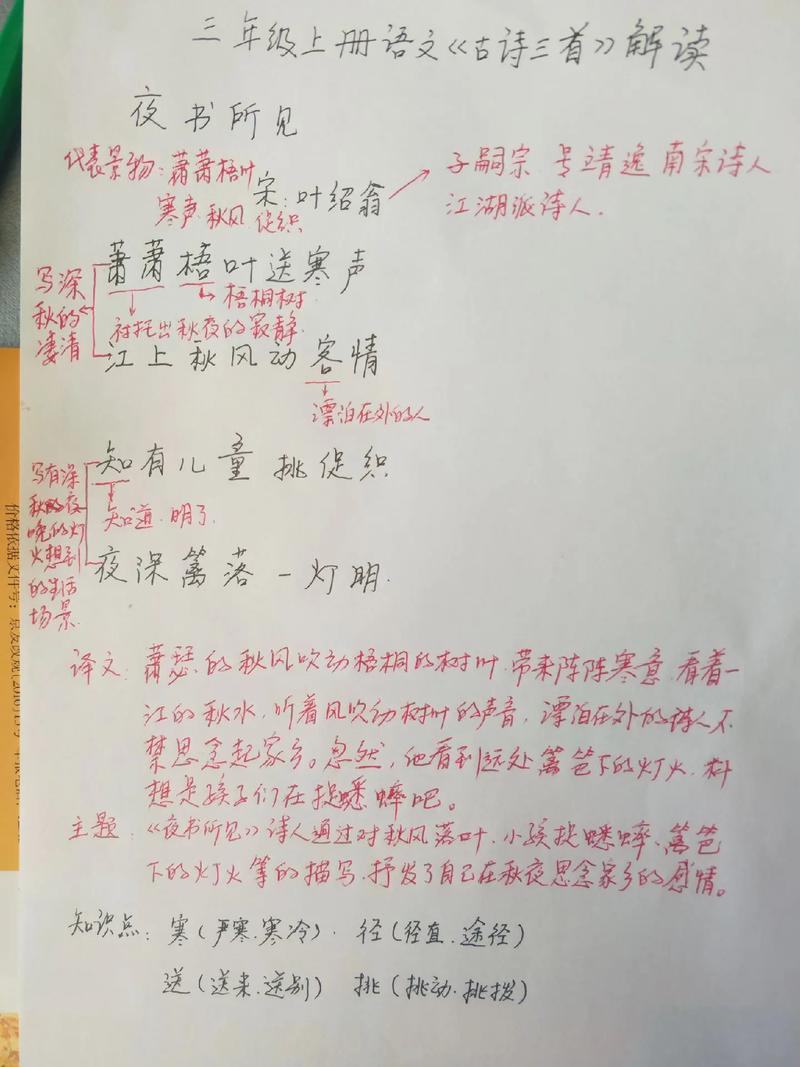 三年级上册语文《古诗三首》解读
夜书所见
代表景物：萧萧梧叶
寒声 秋风 促织
宋：叶绍翁
子嗣宗 号靖逸 南宋诗人
江湖派诗人.
萧萧梧叶送寒声
写深
秋的
凄清
梧桐树
衬托出秋夜的寂静.
江上秋风动客情
漂泊在外的人
知有儿童挑促织
写有深
秋的夜
晚的灯
火想到
的生活
场景
知道.明了
夜深篱落一灯明.
译文：萧瑟的秋风吹动梧桐的树叶.带来阵阵寒意.看着一
江的秋水.听着风吹动树叶的声音，漂泊在外的诗人不
禁思念起家乡。忽然，他看到远处篱笆下的灯火.料
想是孩子们在捉蟋蟀吧。
主题：《夜书所见》诗人通过对秋风落叶.小孩捉蟋蟀、篱笆
下的灯火等的描写.抒发了自己在秋夜思念家乡的感情。
知识点：寒（严寒.寒冷）. 径（径直.途径）
送（送来.送别） 挑（挑动.挑拨）
价格依据文件号：京发改规